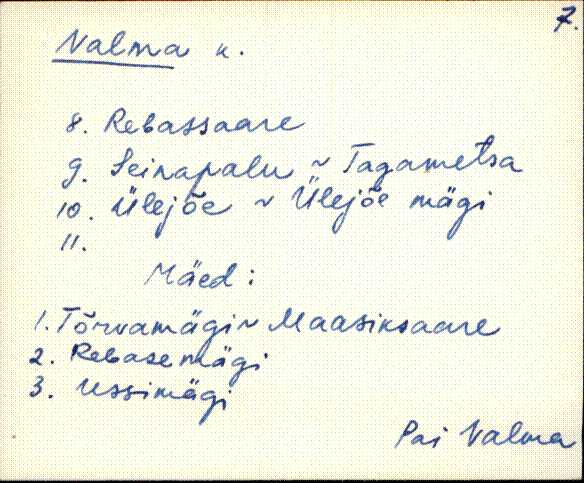 7.
Valma k.
8. Rebassaare
9. Seinapalu ~ Tagametsa
10. Ülejõe ~ Ülejõe mägi
11.
Mäed:
1. Tõrvamägi ~ Maasiksaare
2. Rebasemägi
3. Ussimägi
Pai Valma